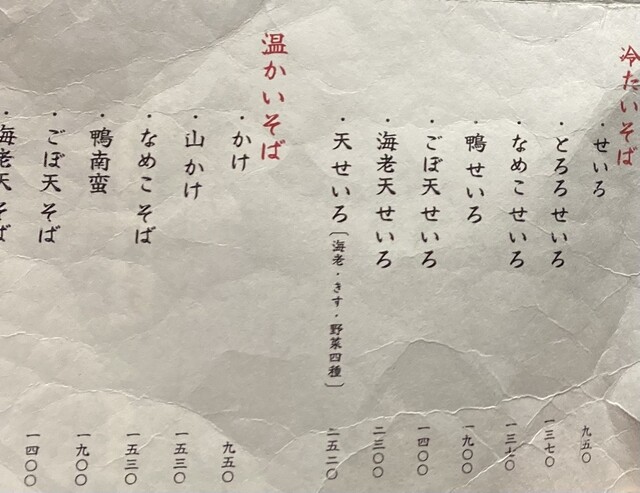 冷たいそば
・せいろ 九五〇
・とろろせいろ 一三七〇
・なめこせいろ 一三七〇
・鴨せいろ 一九〇〇
・ごぼ天せいろ 一四〇〇
・海老天せいろ 二三〇〇
・天せいろ〔海老・きす・野菜四種〕 二五二〇
温かいそば
・かけ 九五〇
・山かけ 一五三〇
・なめこそば 一五三〇
・鴨南蛮 一九〇〇
・ごぼ天そば 一四〇〇
・海老天そば